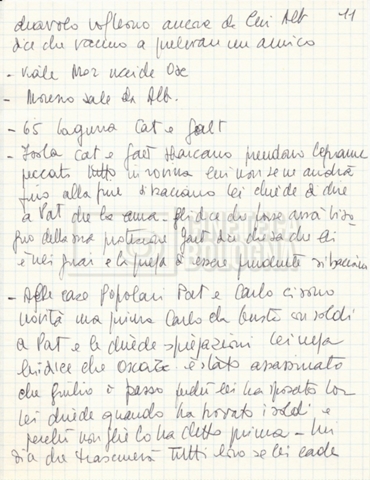 diavolo vogliono ancora da lui Alb 11
dice che vanno a prelevare un amico
- Viale Mar uccide Osc
- Moreno sale da Alb.
- 65 laguna Cat e Gaet
- Isola Cat e Gaet sbarcano prendono
peccato tutto in rovina lui non se ne andrà
fino alla fine si baciano lei chiede di dire
a Pat che la ama - gli dice che forse avrà biso
gno della sua protezione Gaet dice che sa che
è nei guai e la prega di essere prudente si baciano
- Alle case Popolari Pat e Carlo ci sono
novità ma prima Carlo da busta con soldi
a Pat e le chiede spiegazioni lei nega
lui dice che Oscar è stato assassinato
che Giulio è pazzo perché lei ha sposato
lei chiede quando ha trovato i soldi e
perché non glielo ha detto prima - lui
dice che trascinerà tutti loro se lei cade